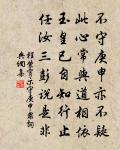 不守庚申亦不疑
此心常與道相依
玉皇已自知行止
任汝三彭說是非
程紫霄示守庚申